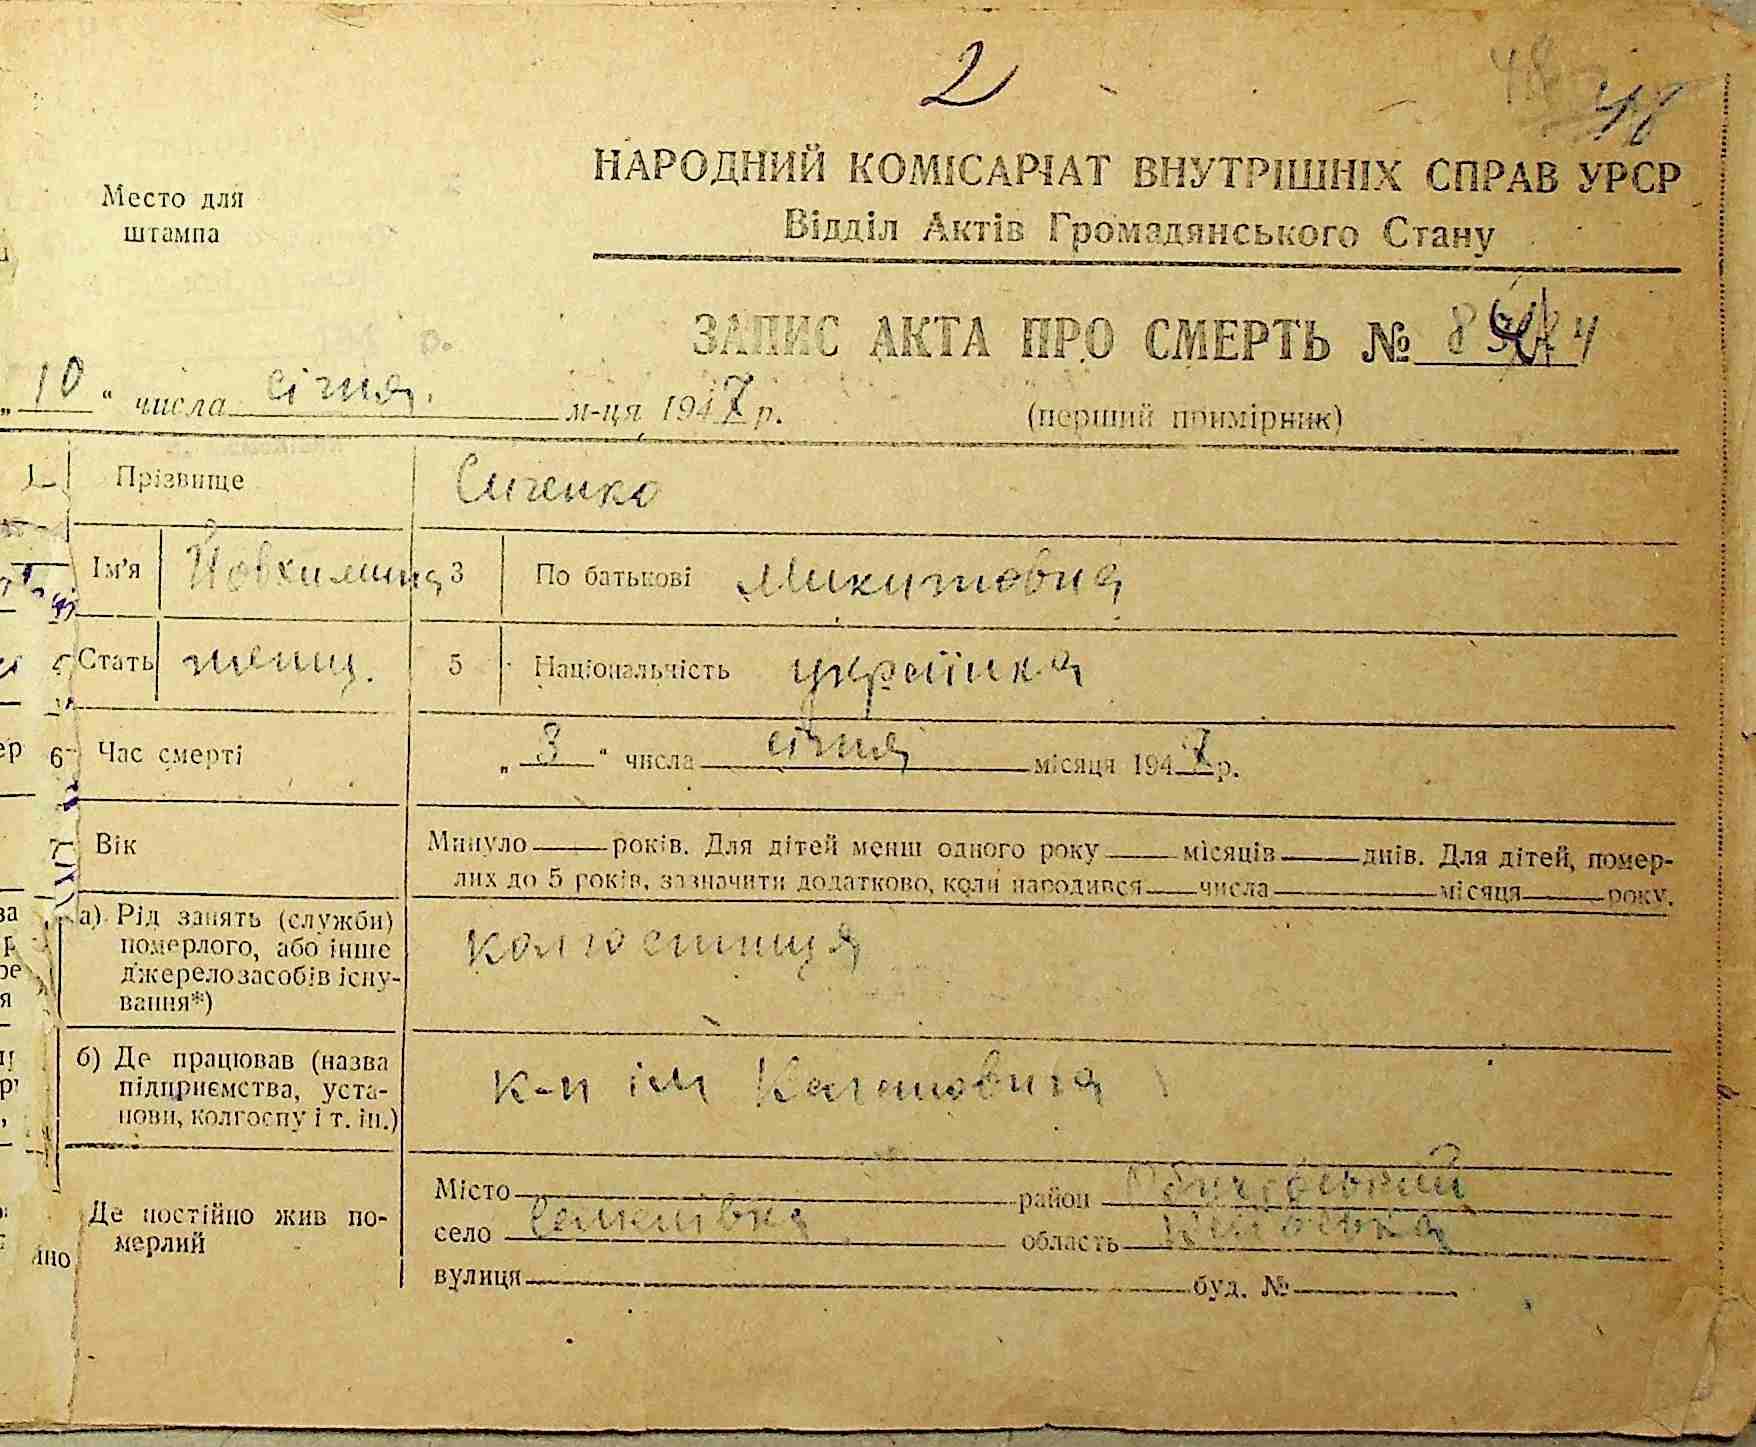 2
48
Место для
штампа
НАРОДНИЙ КОМІСАРІАТ ВНУТРІШНІХ СПРАВ УРСР
Відділ Актів Громадянського Стану
ЗАПИС АКТА ПРО СМЕРТЬ №
„10“ числа січня м-ця 1947 р. (перший примірник)
Прізвище
Ім'я Йовхимина 3 По батькові Микитовна
Стать жінц. 5 Національність українка
6 Час смерті „3“ числа січня місяця 1947 р.
Вік Минуло років. Для дітей менш одного року місяців днів. Для дітей, помер-
лих до 5 років, зазначити додатково, коли народився числа місяця року.
а) Рід занять (служби)
померлого, або інше
джерело засобів існу-
вання*)
колгоспниця
б) Де працював (назва
підприємства, уста-
нови, колгоспу і т. ін.)
к-п ім Кагановича
Де постійно жив по-
мерлий
Місто район Обухівський
село Семенівка область Київська
вулиця буд. №